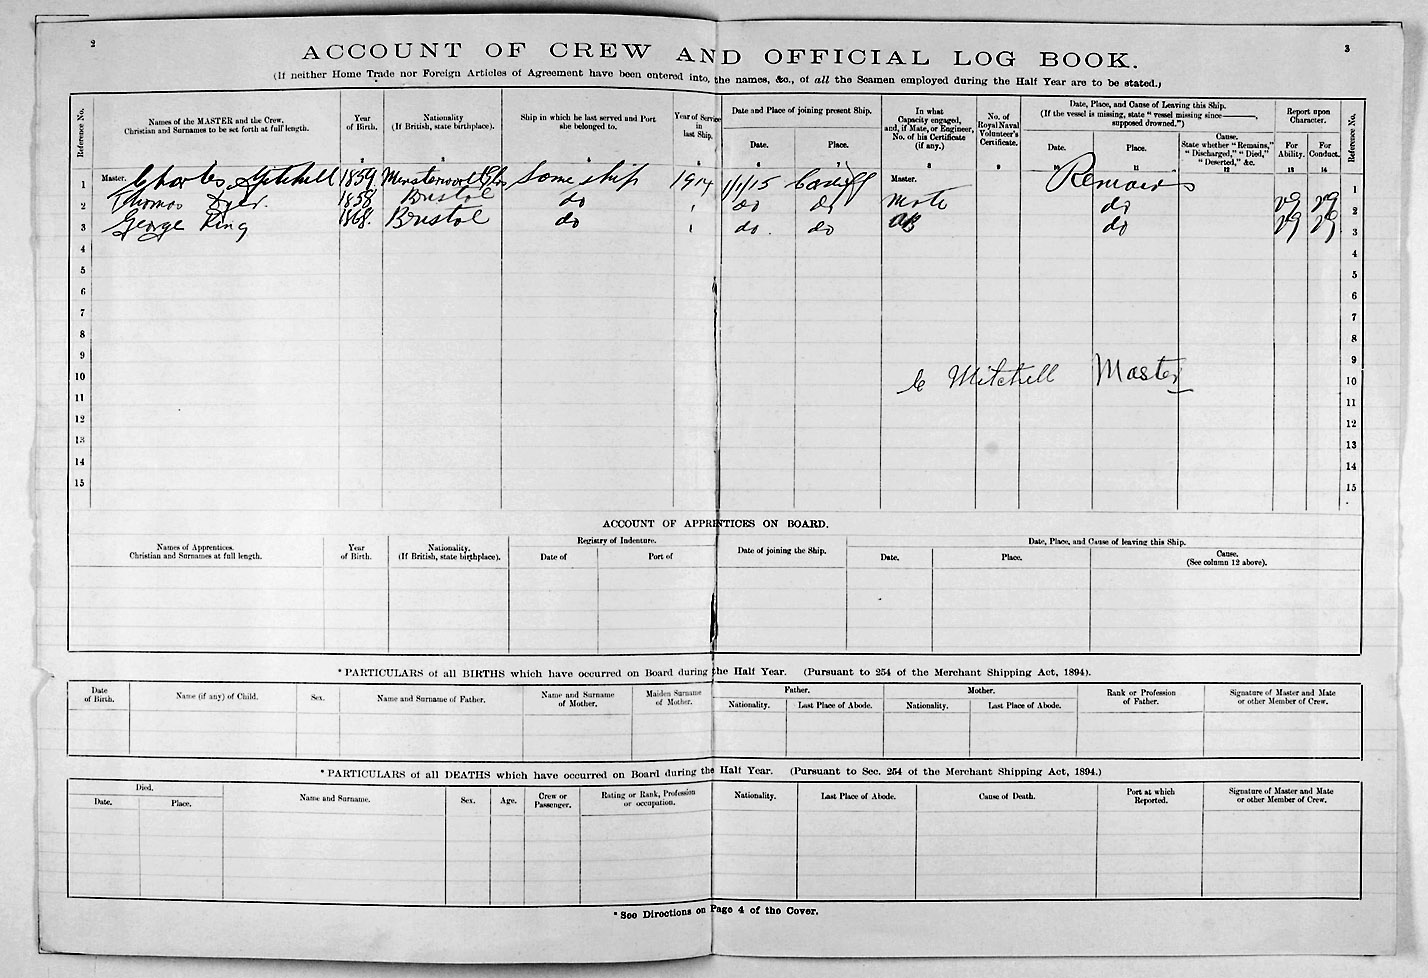 2
3
ACCOUNT OF CREW AND OFFICIAL LOG BOOK.
(If neither Home Trade nor Foreign Articles of Agreement have been entered into, the names, &c., of all the Seamen employed during the Half Year are to be stated.)
Reference No.
Names of the MASTER and the Crew, Christian and Surnames to be set forth at full length.
Year of Birth.
2
Nationality (If British, state birthplace).
3
Ship in which he last served and Port she belonged to.
4
Year of Service in last Ship.
5
Date and Place of joining present Ship.
Date.
6
Place.
7
In what Capacity engaged, and, if Mate, or Engineer, No. of his Certificate (if any.)
8
No. of Royal Naval Volunteer's Certificate.
9
Date, Place, and Cause of Leaving this Ship.
(If the vessel is missing, state "vessel missing since———, supposed drowned.")
Date.
10
Place.
11
Cause. State whether "Remains," "Discharged," "Died," "Deserted," &c.
12
Report upon Character.
For Ability.
13
For Conduct.
14
Reference No.
1 Master. Charles Mitchell 1859 Minsterworth Glos Same ship 1914 1/1/15 Cardiff Master. Remains 1
2 Thomas 1858 Bristol do do do Mate do VG VG 2
3 George King 1868. Bristol do do. do AB do VG VG 3
4 4
5 5
6 6
7 7
8 8
9 9
10 C Mitchell Master 10
11 11
12 12
13 13
14 14
15 15
ACCOUNT OF APPRENTICES ON BOARD.
Names of Apprentices. Christian and Surnames at full length.
Year of Birth.
Nationality. (If British, state birthplace).
Registry of Indenture.
Date of
Port of
Date of joining the Ship.
Date, Place, and Cause of leaving this Ship.
Date.
Place.
Cause. (See column 12 above).
*PARTICULARS of all BIRTHS which have occurred on Board during the Half Year. (Pursuant to 254 of the Merchant Shipping Act, 1894).
Date of Birth.
Name (if any) of Child.
Sex.
Name and Surname of Father.
Name and Surname of Mother.
Maiden Surname of Mother.
Father.
Nationality.
Last Place of Abode.
Mother.
Nationality.
Last Place of Abode.
Rank or Profession of Father.
Signature of Master and Mate or other Member of Crew.
*PARTICULARS of all DEATHS which have occurred on Board during the Half Year. (Pursuant to Sec. 254 of the Merchant Shipping Act, 1894.)
Died.
Date.
Place.
Name and Surname.
Sex.
Age.
Crew or Passenger.
Rating or Rank, Profession or occupation.
Nationality.
Last Place of Abode.
Cause of Death.
Port at which Reported.
Signature of Master and Mate or other Member of Crew.
*See Directions on Page 4 of the Cover.